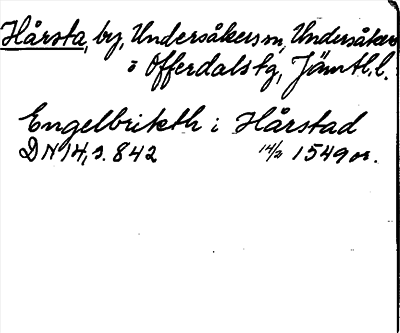 Hårsta, by, Undersåkers sn, Undersåkers
o Offerdals tg, Jämtl. l.
Engelbrikth i Hårstad
DN 14, s. 842 14/2 1549 or.